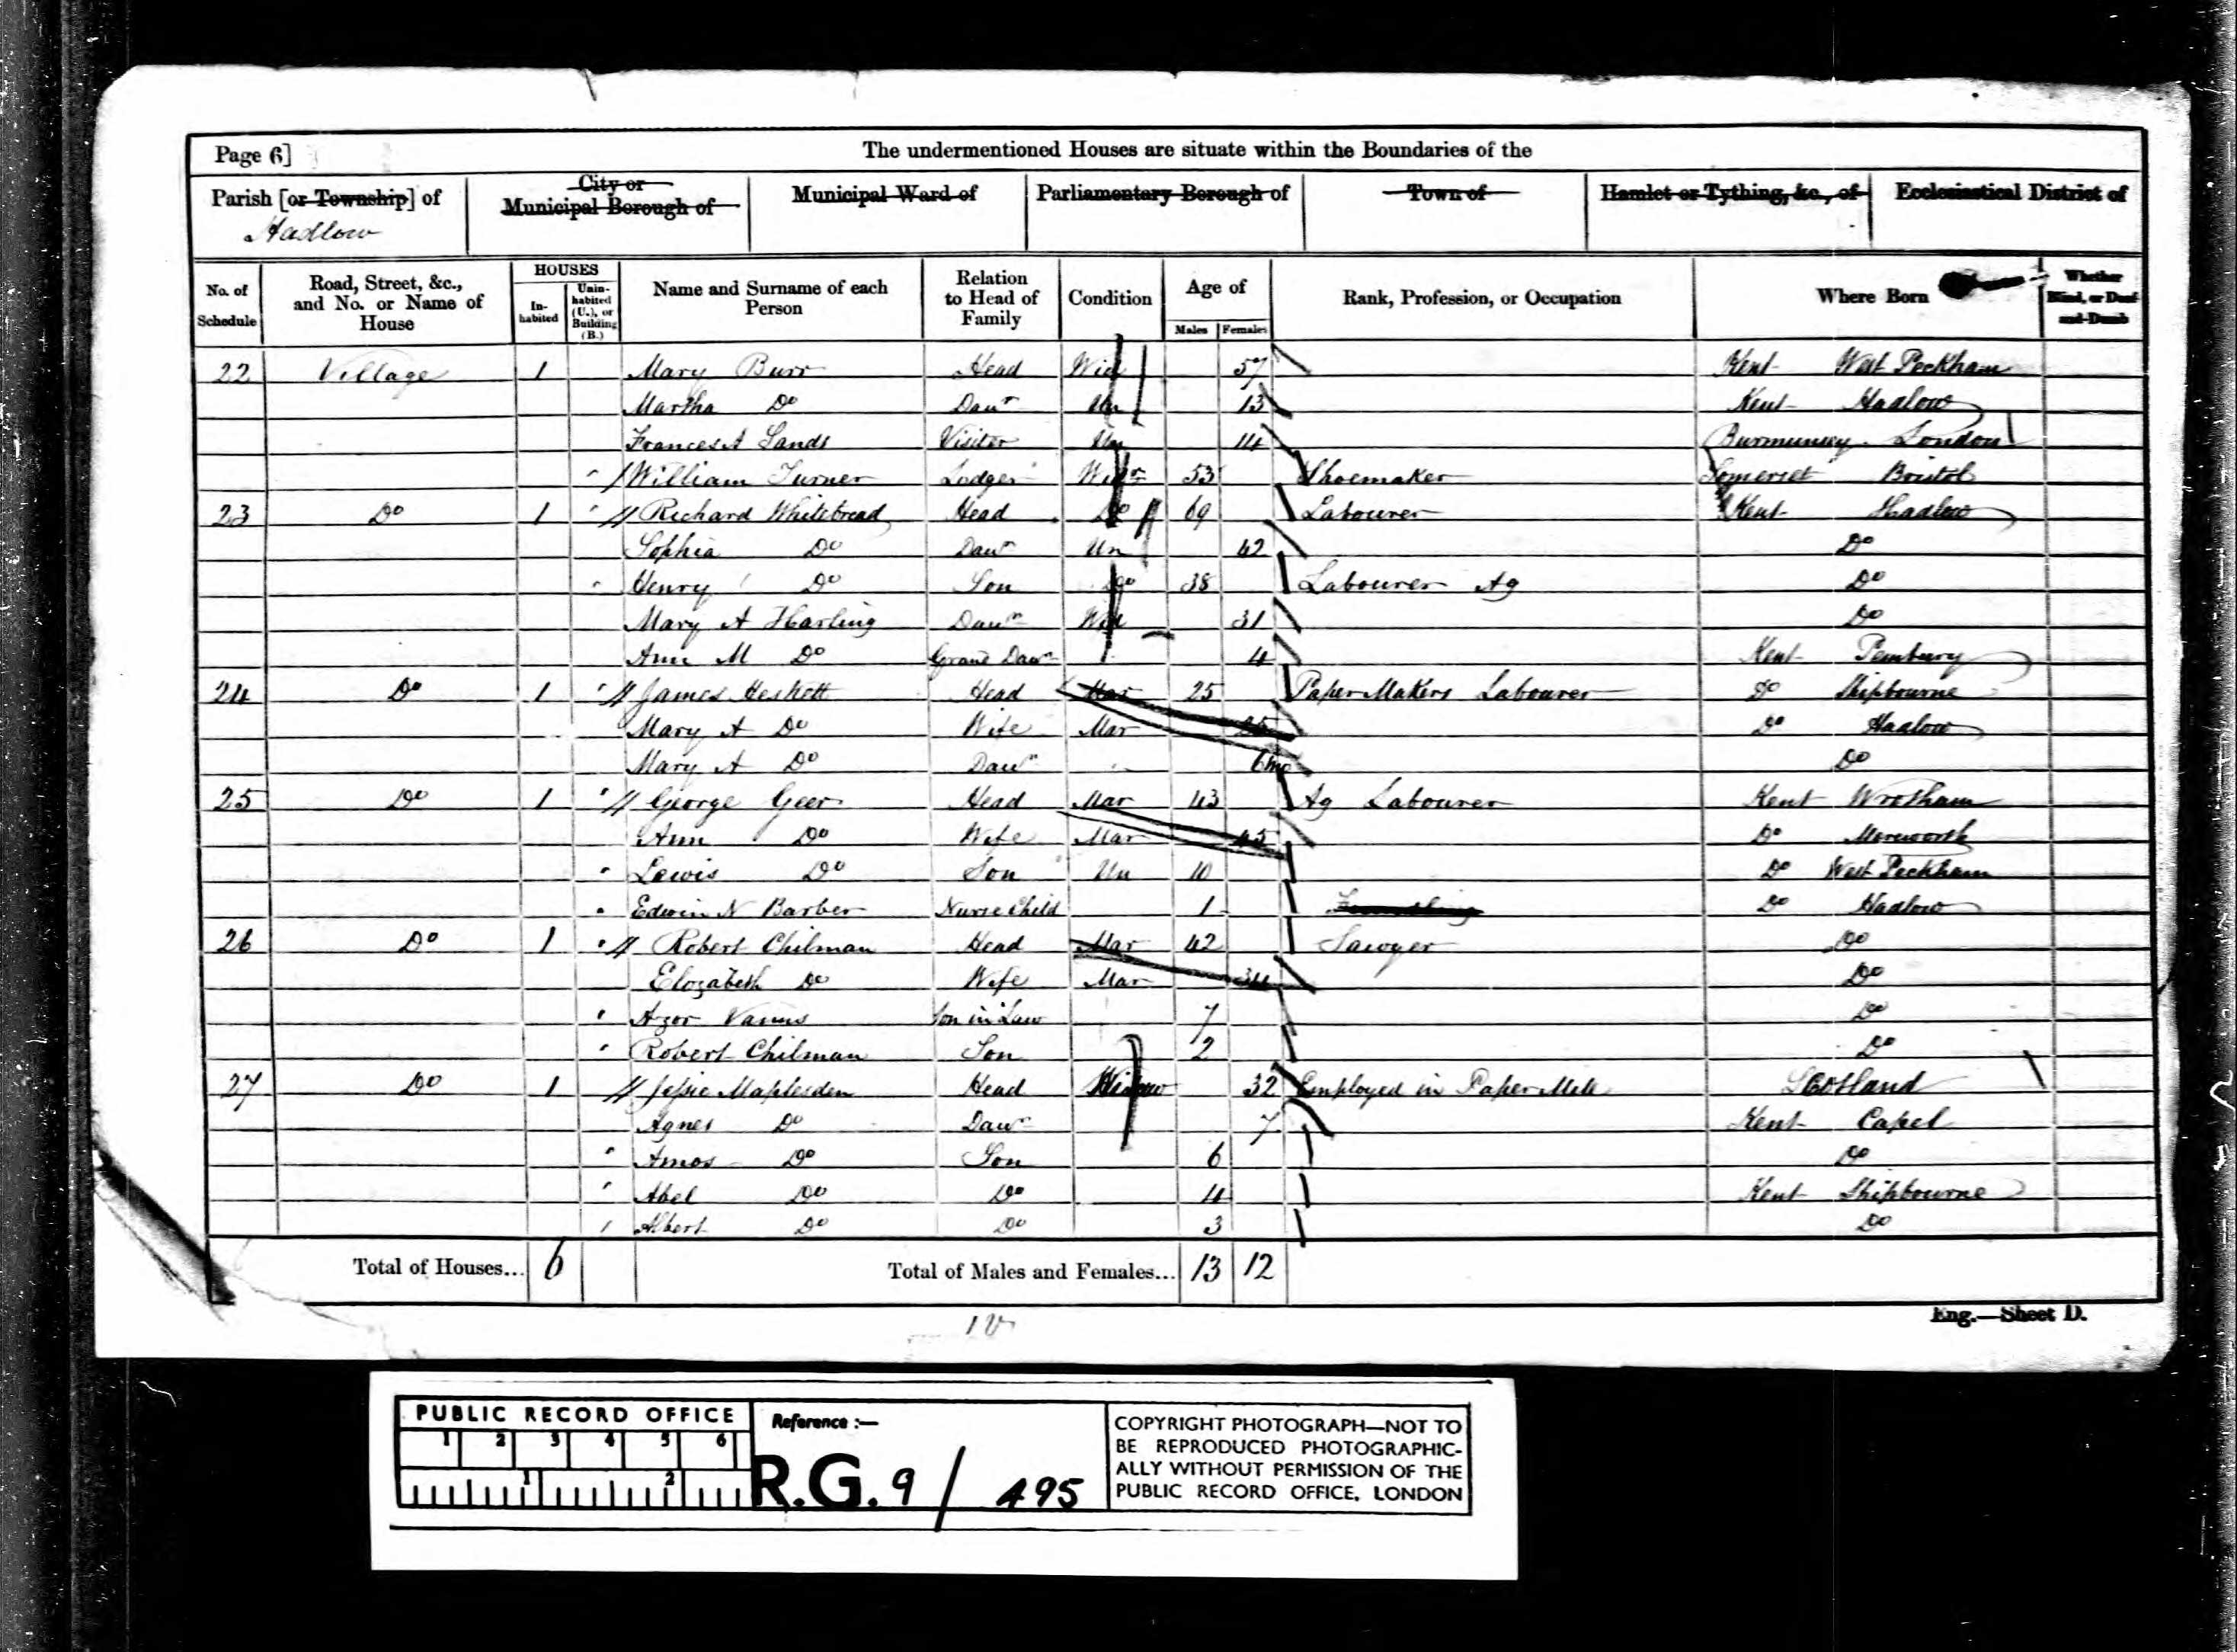 Page 6]
The undermentioned Houses are situate within the Boundaries of the
Parish [or Township] of Hadlow
City or Municipal Borough of
Municipal Ward of
Parliamentary Borough of
Town of
Hamlet or Tything, &c., of
Ecclesiastical District of
No. of Schedule
Road, Street, &c., and No. or Name of House
HOUSES
In-habited
Unin-habited (U.), or Building (B.)
Name and Surname of each Person
Relation to Head of Family
Condition
Age of
Males
Females
Rank, Profession, or Occupation
Where Born
Whether Blind, or Deaf-and-Dumb
22 Village 1 Mary Burr Head Wid 57 Kent West Peckham
Martha Do Daur Un 13 Kent Hadlow
Frances A Sands Visitor Un 14 Burmunsey London
William Turner Lodger Widr 53 Shoemaker Somerset Bristol
23 Do 1 Richard Whitebread Head Do 69 Labourer Kent Hadlow
Sophia Do Daur Un 42 Do
Henry Do Son Do 38 Labourer Ag Do
Mary A Harling Daur Wid 31 Do
Ann M Do Grand Daur 4 Kent Pembury
24 Do 1 James Heskett Head Mar 25 Paper Makers Labourer Do Shipbourne
Mary A Do Wife Mar Do Hadlow
Mary A Do Daur 6mo Do
25 Do 1 George Geer Head Mar 43 Ag Labourer Kent Wrotham
Ann Do Wife Mar 45 Do Mereworth
Lewis Do Son Un 10 Do West Peckham
Edwin N Barber Nurse Child 1 Do Hadlow
26 Do 1 Robert Chilman Head Mar 42 Sawyer Do
Elozabeth Do Wife Mar 34 Do
Azor Son in Law 7 Do
Robert Chilman Son 2 Do
27 Do 1 Jessie Maplesden Head Widow 32 Employed in Paper Mill Scotland
Agnes Do Daur 7 Kent Capel
Amos Do Son 6 Do
Abel Do Do 4 Kent Shipbourne
Albert Do Do 3 Do
Total of Houses... 6
Total of Males and Females... 13 12
Eng.—Sheet D.
PUBLIC RECORD OFFICE
1 2 3 4 5 6
1 2
Reference :—
R.G. 9 / 495
COPYRIGHT PHOTOGRAPH—NOT TO
BE REPRODUCED PHOTOGRAPHIC-
ALLY WITHOUT PERMISSION OF THE
PUBLIC RECORD OFFICE, LONDON